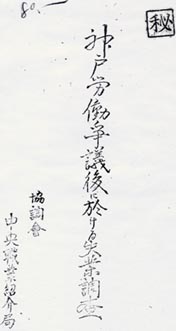 秘
80.-
神戸労働争議後に於ける失業調査
協調會
中央職業紹介局